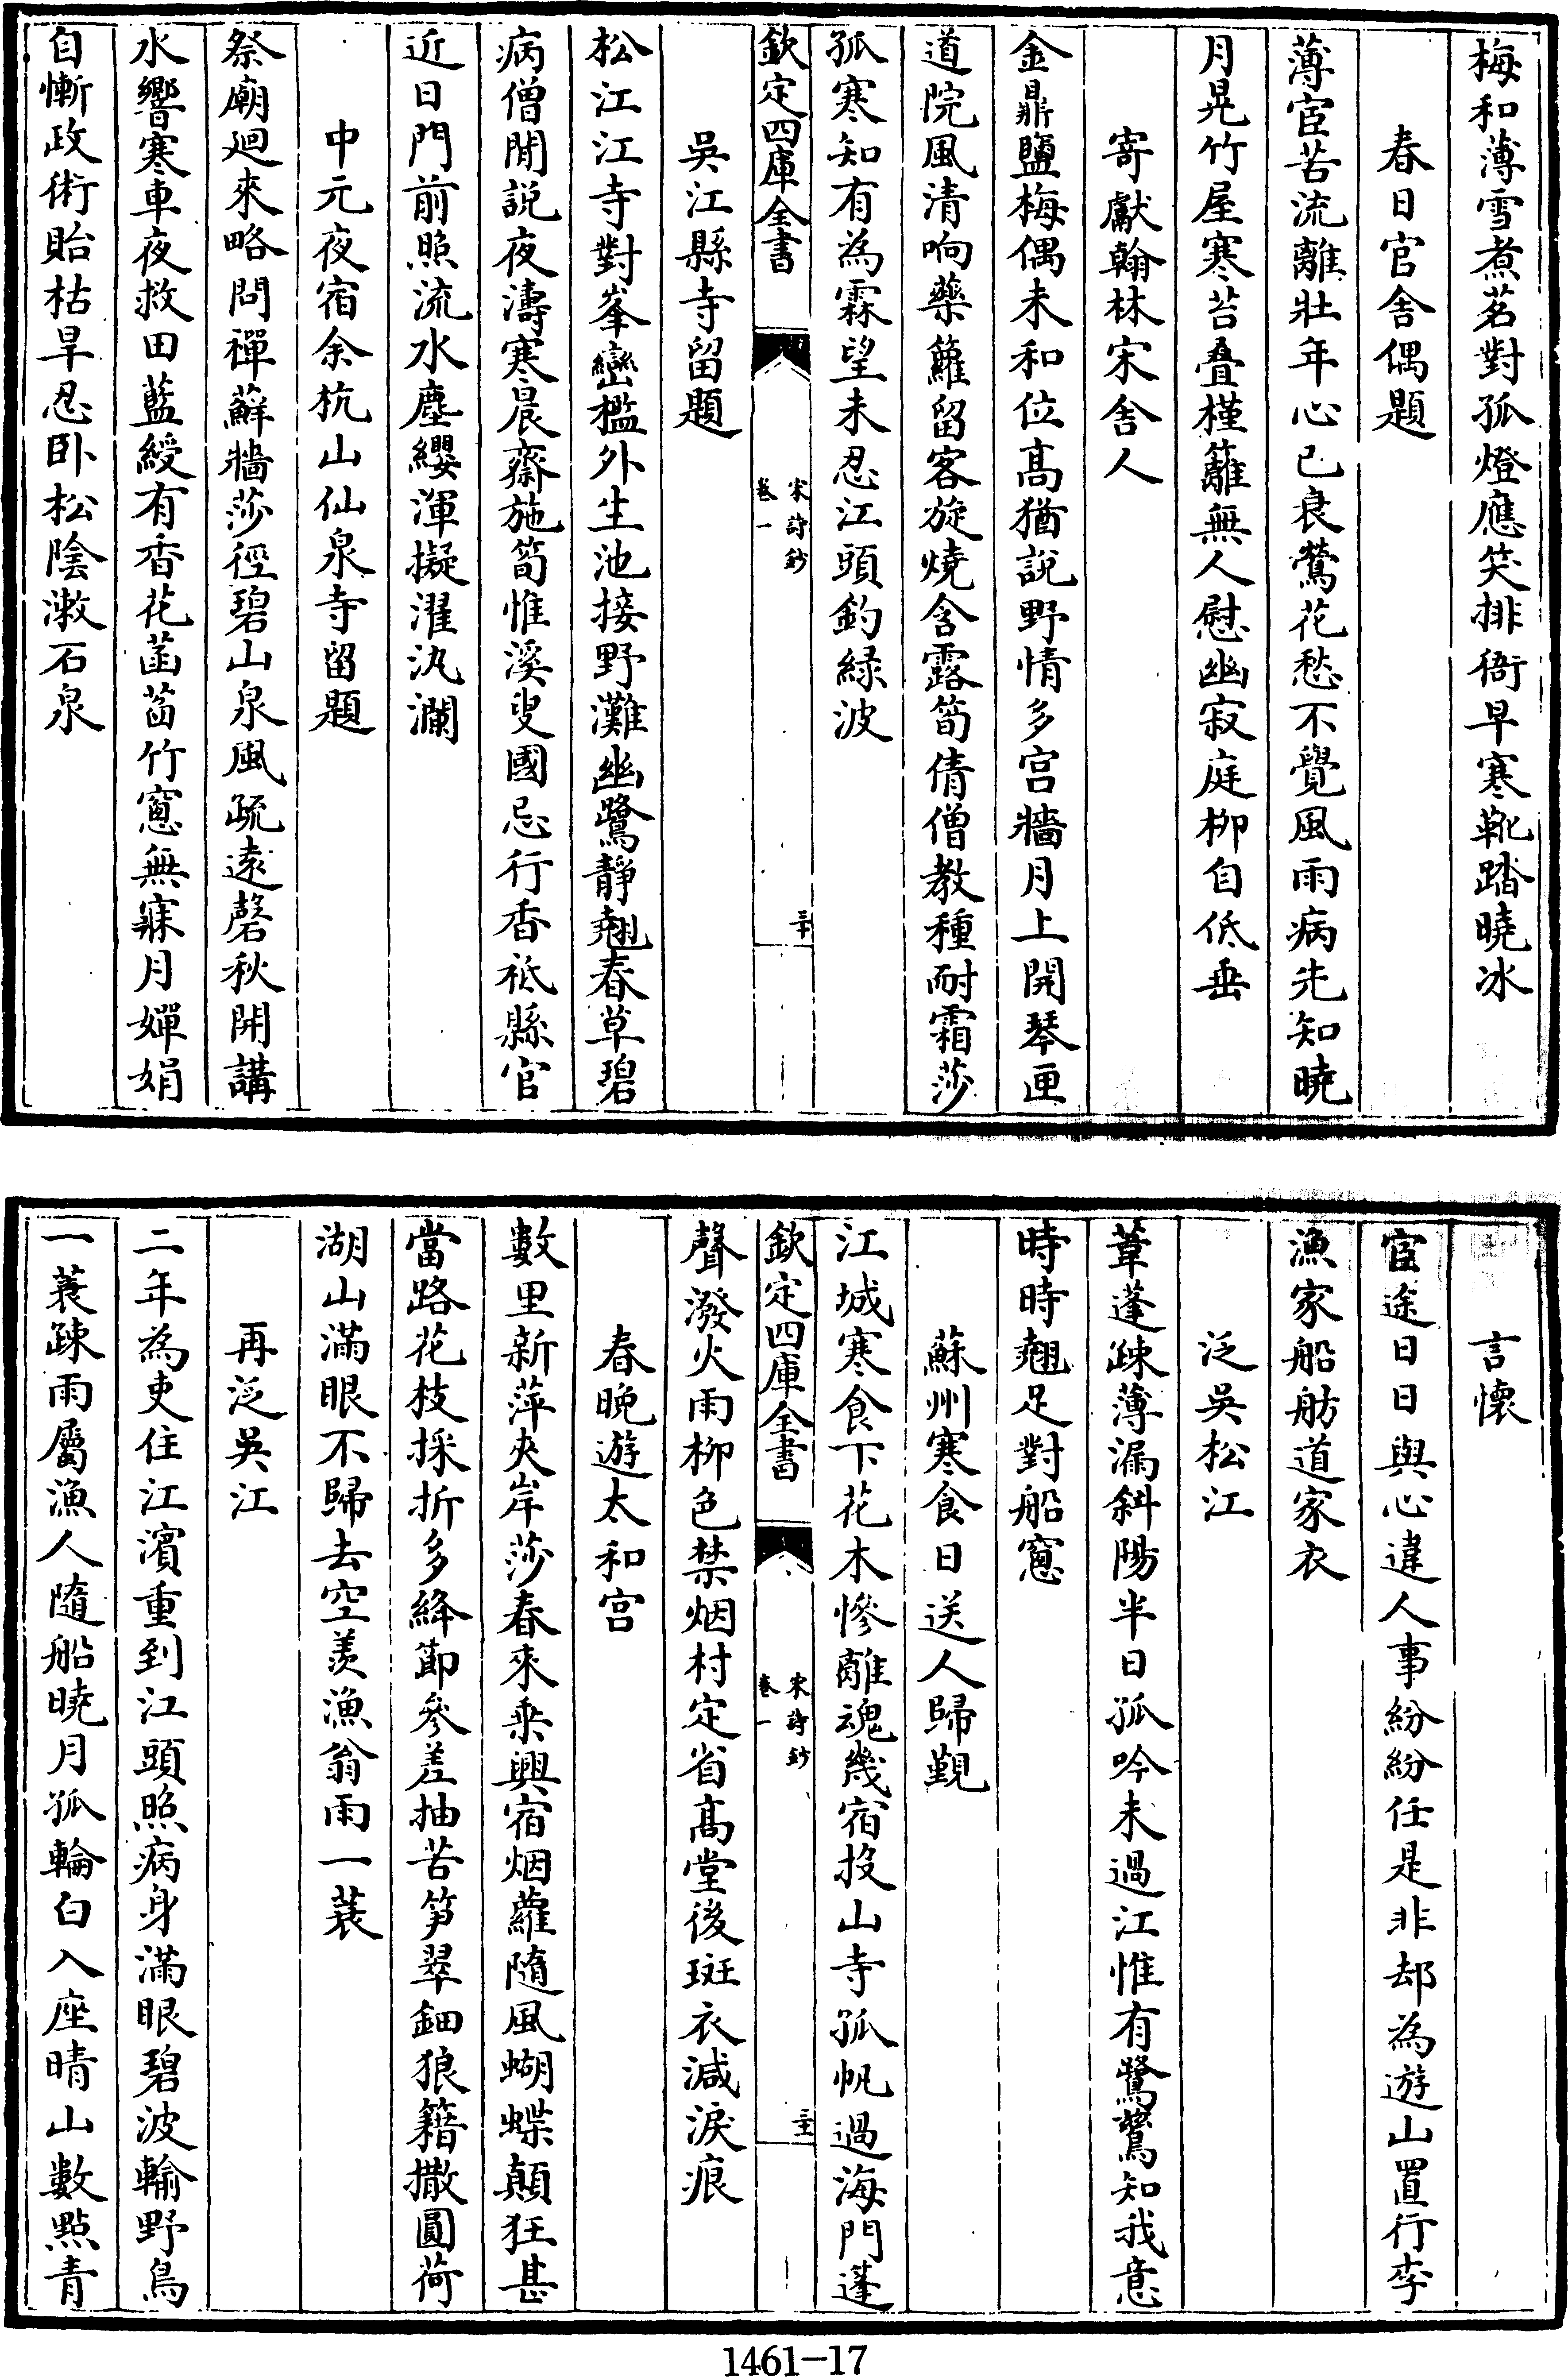 梅和薄雪煮茗對孤燈應笑排衙早寒靴踏曉冰
春日官舍偶題
薄宦苦流離壯年心已衰鶯花愁不覺風雨病先知曉
月晃竹屋寒苔疊槿籬無人慰幽寂庭柳自低垂
寄獻翰林宋舍人
金鼎鹽梅偶未和位髙猶説野情多宫牆月上開琴匣
道院風清响藥籮留客旋燒含露筍倩僧教種耐霜莎
孤寒知有為霖望未忍江頭釣緑波
欽定四庫全書
宋詩鈔
卷一
三十
吳江縣寺留題
松江江寺對峯巒檻外生池接野灘幽鷺靜翹春草碧
病僧閒説夜濤寒晨齋施筍惟溪叟國忌行香秪縣官
近日門前照流水塵纓渾擬濯汍瀾
中元夜宿余杭山仙泉寺留題
祭廟廻來略問禪蘚牆莎徑碧山泉風疏遠磬秋開講
水響寒車夜救田藍綬有香花菡萏竹窻無寐月嬋娟
自慚政術貽枯旱忍卧松陰漱石泉
言懷
宦途日日與心違人事紛紛任是非却為遊山置行李
漁家船舫道家衣
泛吳松江
葦蓬疎薄漏斜陽半日孤吟未過江惟有鷺鷥知我意
時時翹足對船窻
蘇州寒食日送人歸覲
江城寒食下花木慘離魂幾宿投山寺孤帆過海門蓬
欽定四庫全書
宋詩鈔
卷一
三十一
聲潑火雨柳色禁烟村定省髙堂後斑衣減淚痕
春晚遊太和宫
數里新萍夾岸莎春來乘興宿烟蘿隨風蝴蝶顛狂甚
當路花枝採折多絳節參差抽苦筍翠鈿狼籍撒圓荷
湖山滿眼不歸去空羨漁翁雨一蓑
再泛吳江
二年為吏住江濱重到江頭照病身滿眼碧波輸野鳥
一蓑疎雨屬漁人隨船曉月孤輪白入座晴山數點青
1461—17